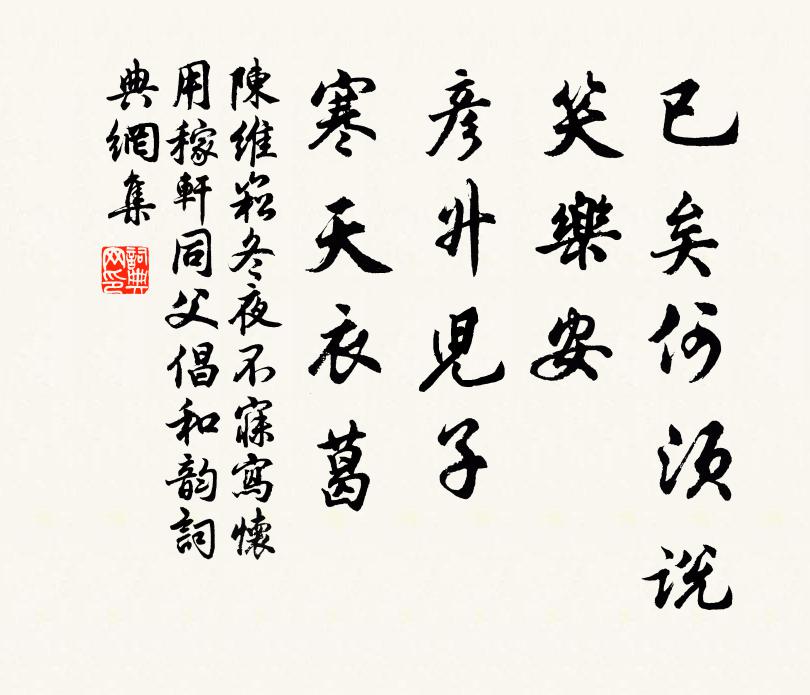 已矣何須說
笑樂安
彦升兒子
寒天衣葛
陳維崧冬夜不寐寫懷
用稼軒同父倡和韵詞
典網集
詞典網印